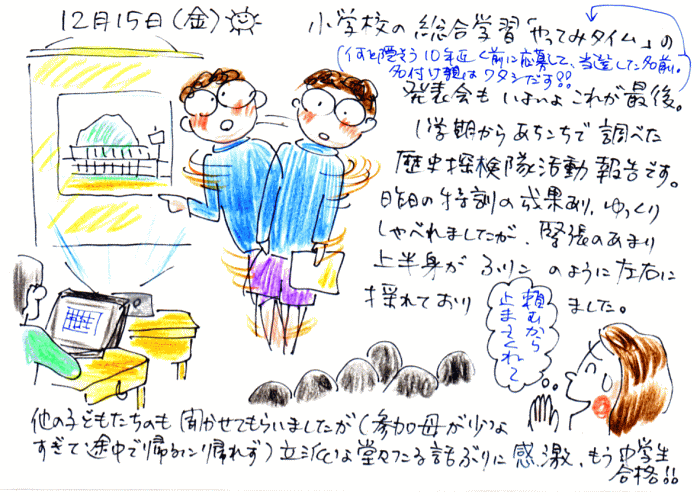 12月15日(金)
小学校の総合学習「やってみタイム」の
(何を隠そう10年近く前に応募して、当選した名前。
名付け親はワタシだす!!)
発表会もいよいよこれが最後。
1学期からあちこちで調べた
歴史探検隊活動報告です。
昨日の特訓の成果あり、ゆっくり
しゃべれましたが、緊張のあまり
上半身がふりこのように左右に
揺れておりました。
頼むから
止まってくれ〜
他の子どもたちのも聞かせてもらいましたが(参加母が少な
すぎて途中で帰るに帰れず)立派な堂々たる話ぶりに感激、もう中学生
合格!!